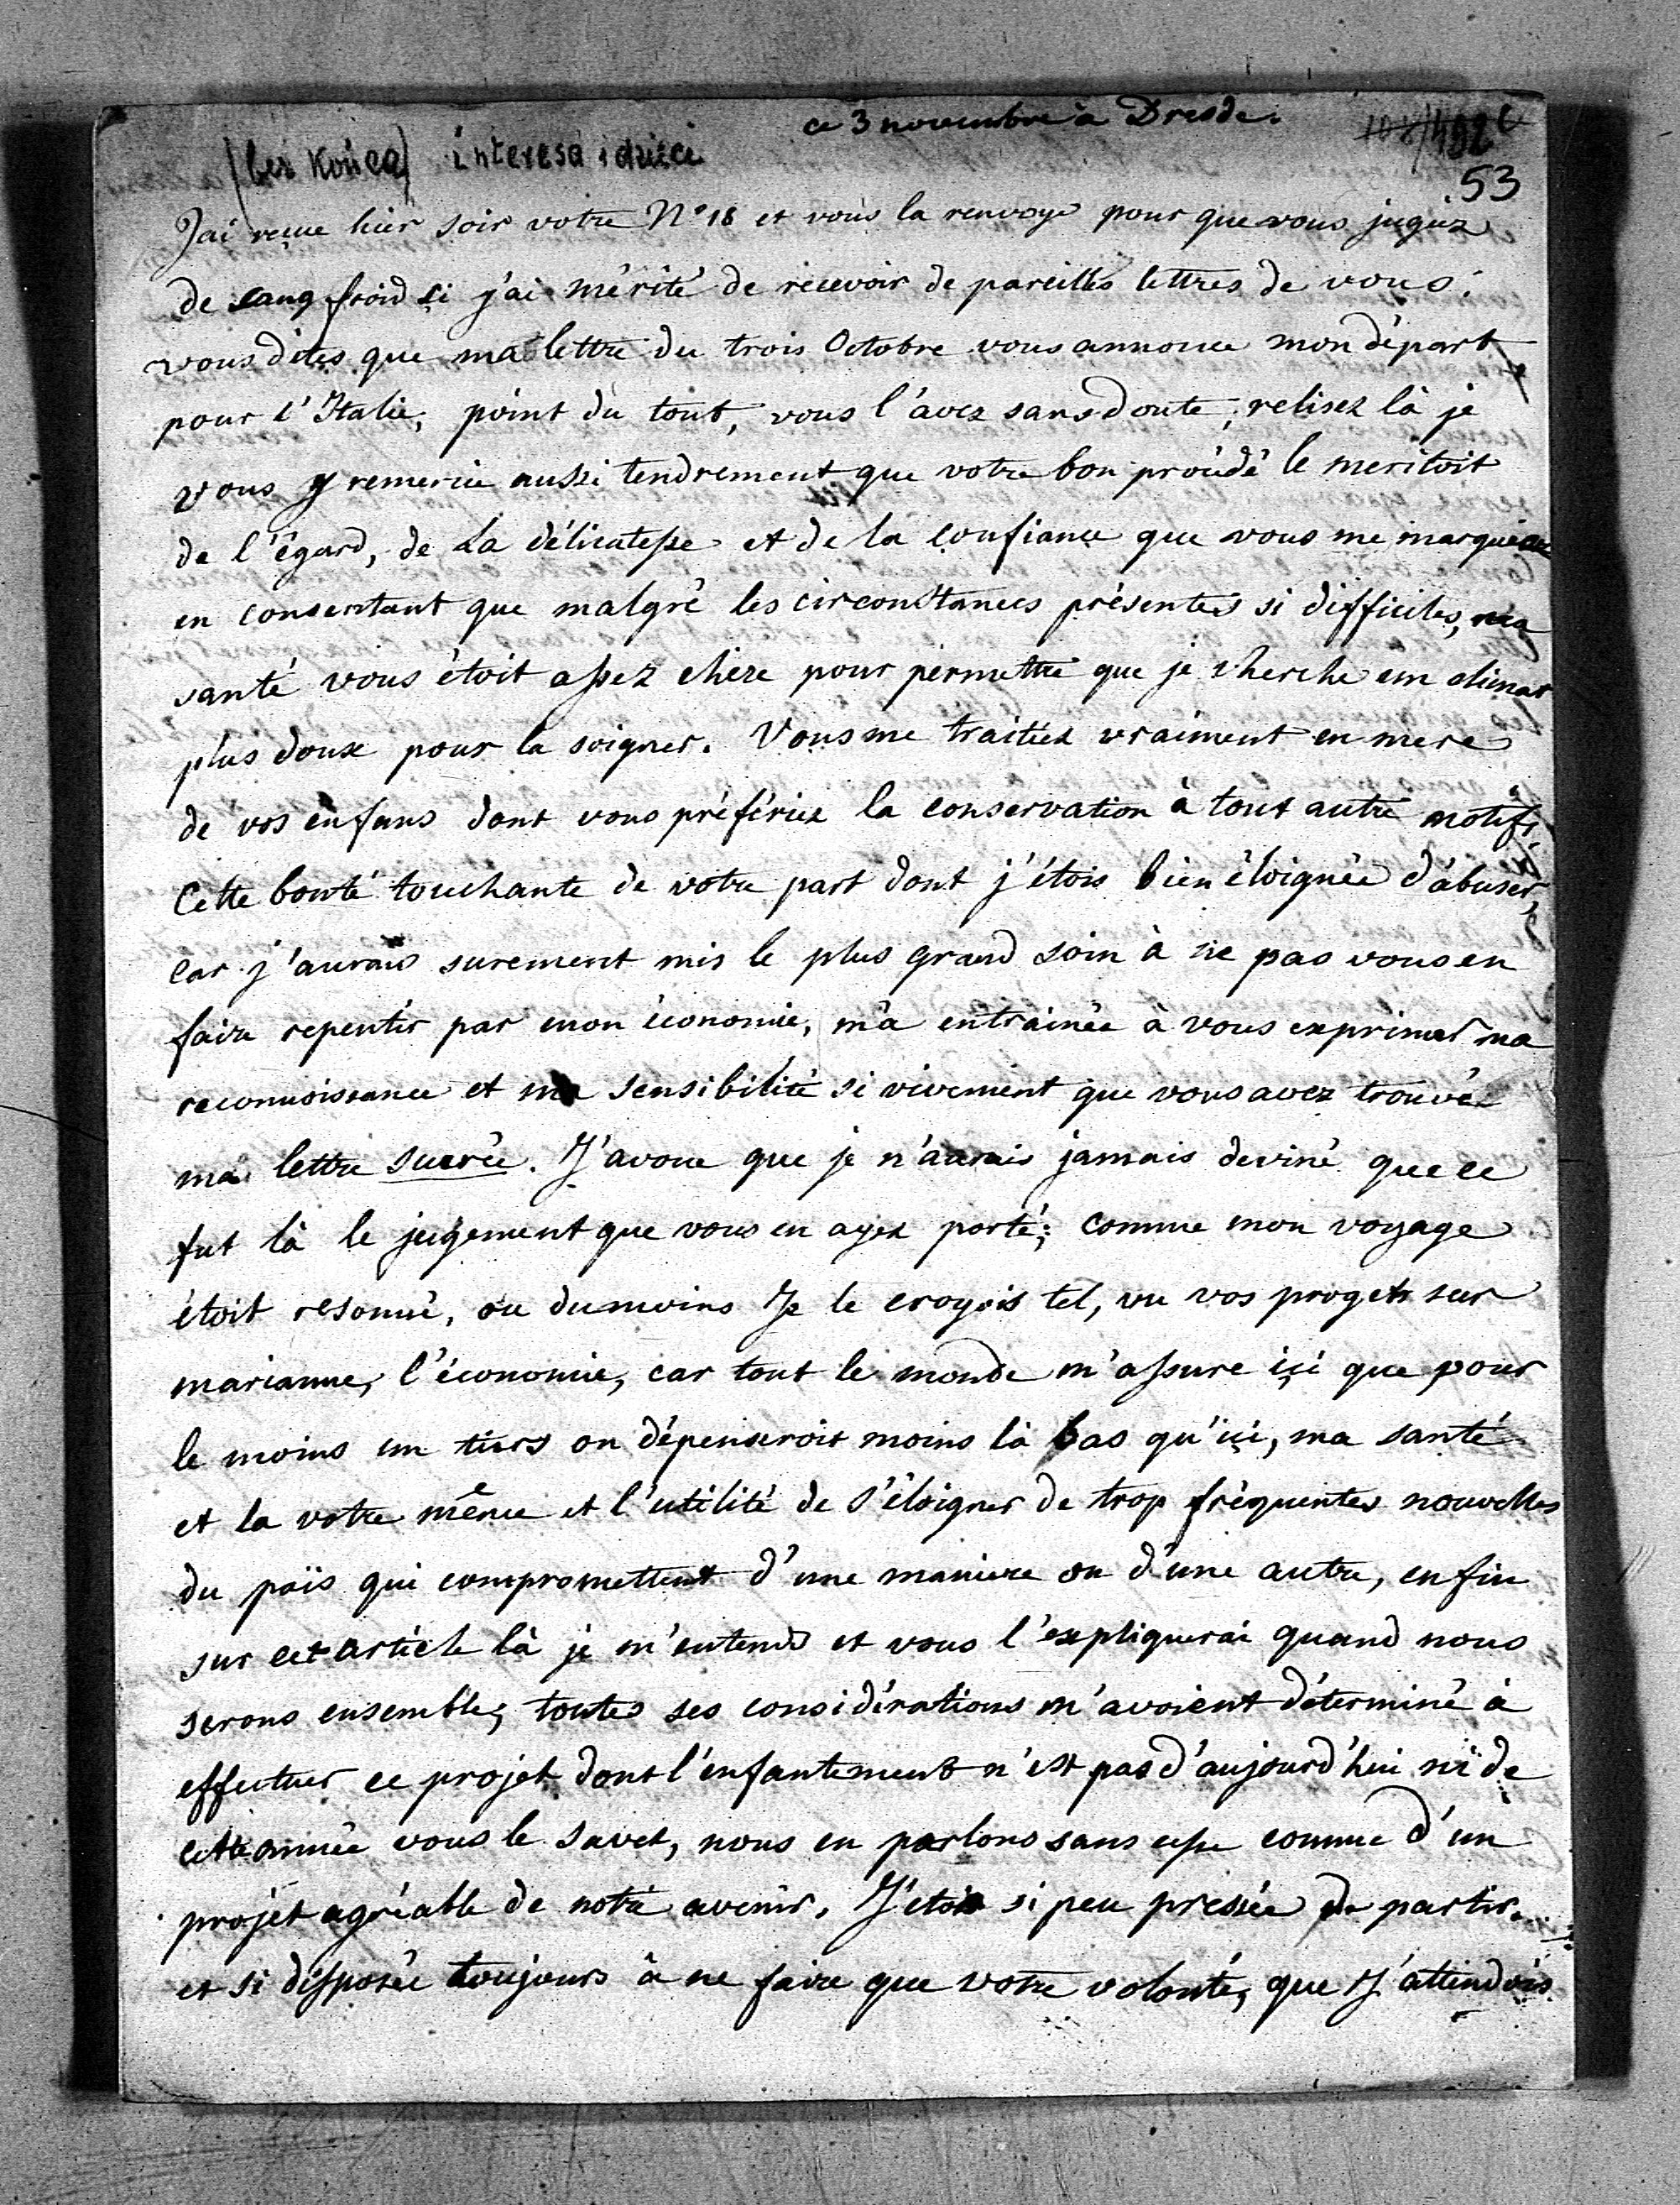 ce 3 novembre à Dresde.
(bez końca) interesa i dzieci
53
J'ai reçue hier soir votre N° 18 et vous la renvoye pour que vous jugiez
de sang froid si j'ai mérité de recevoir de pareilles lettres de vous.
vous dites que ma lettre du trois Octobre vous annonce mon départ
pour l'Italie, point du tout, vous l'avez sans doute, relisez là je
vous y remercie aussi tendrement que votre bon procédé le meritoit
de l'égard, de la délicatesse et de la confiance que vous me marquiez
en consentant que malgré les circonstances présentes si difficiles, ma
santé vous étoit assez chere pour permettre que je cherche un climat
plus doux pour la soigner. Vous me traitiez vraiment en mere
de vos enfans dont vous préfériez la conservation à tout autre motif,
Cette bonté touchante de votre part dont j'étois bien éloignée d'abuser,
car j'aurais surement mis le plus grand soin à ne pas vous en
faire repentir par mon économie, m'a entrainée à vous exprimer ma
reconnoissance et ma sensibilité si vivement que vous avez trouvé
ma lettre sucrée. J'avoue que je n'aurais jamais deviné que ce
fut là le jugement que vous en ayez porté; comme mon voyage
étoit resonné, ou du moins Je le croyois tel, vu vos progets sur
marianne, l'économie, car tout le monde m'assure içi que pour
le moins un tiers on dépenseroit moins là bas qu'içi, ma santé
et la votre même et l'utilité de s'éloigner de trop fréquentes nouvelles
du païs qui compromettent d'une maniere ou d'une autre, enfin
sur cet article là je m'entends et vous l'expliquerai quand nous
serons ensemble, toutes ses considérations m'avoient déterminé à
effectuer ce projet dont l'enfantement n'est pas d'aujourd'hui ni de
cette année vous le savez, nous en parlons sans cesse comme d'un
projet agréable de notre avenir. J'etois si peu pressée de partir.
et si disposée toujours à ne faire que votre volonté, que J'attendois